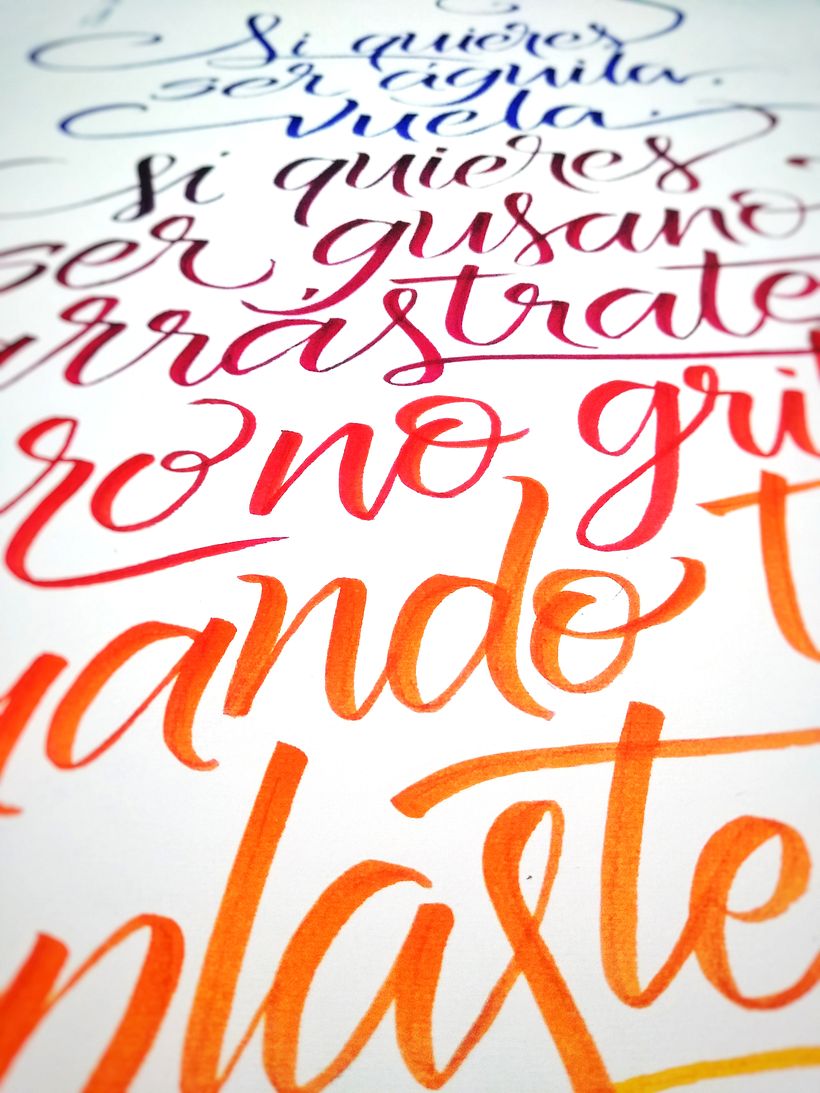 Si quieres
ser águila.
vuela.
Si quieres
ser gusano
arrástrate
ro no gri
ando t
plaste